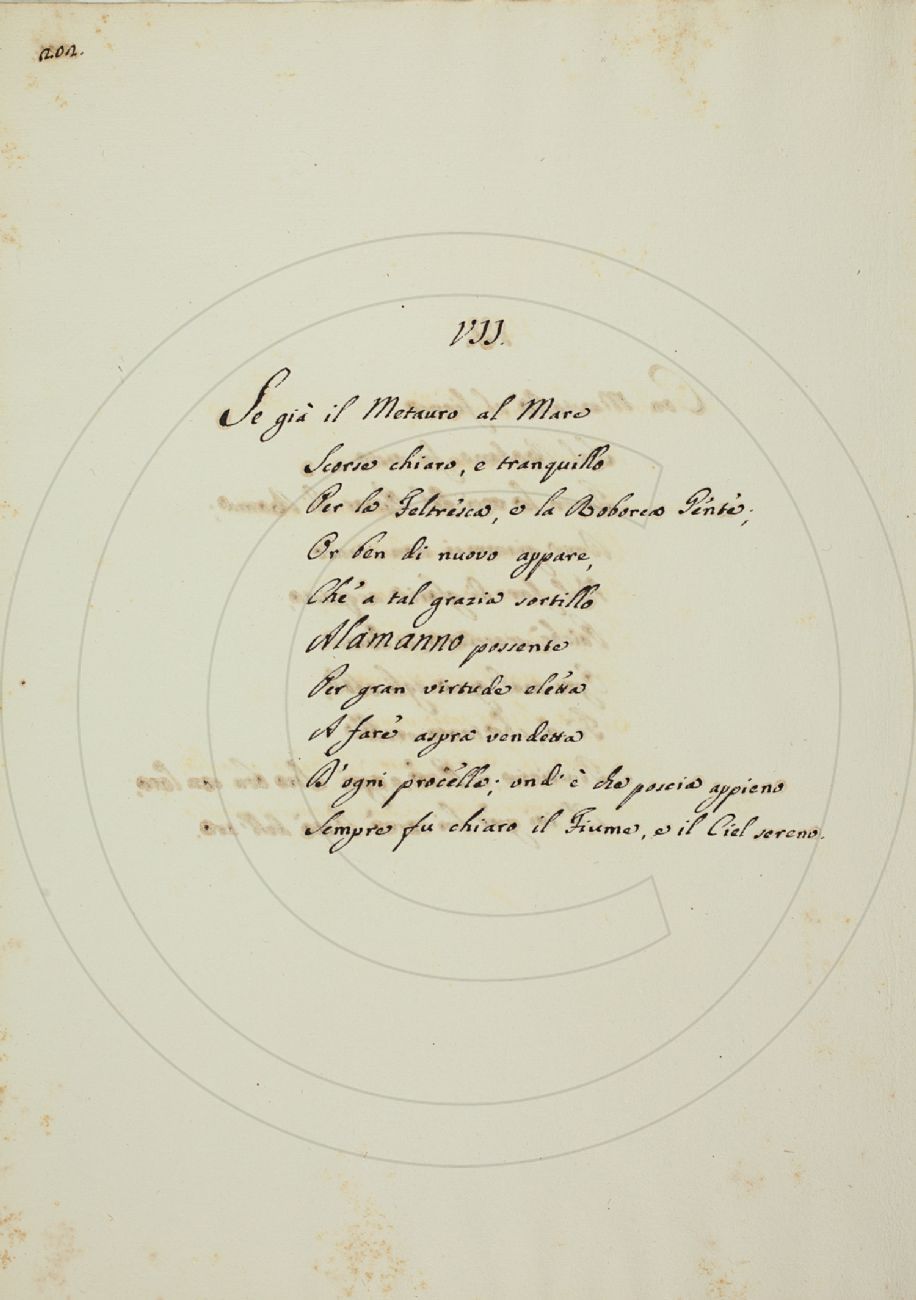 202.
VII.
Se già il Metauro al Mare
Scorse chiaro, e tranquillo
Per la Feltresca, e la Roborea Gente;
Or ben di nuovo appare,
Che a tal grazia sortillo
Alamanno possente
Per gran virtude eletta
A fare aspra vendetta
D'ogni procella; ond'è che poscia appieno
Sempre fu chiaro il Fiume, e il Ciel sereno.